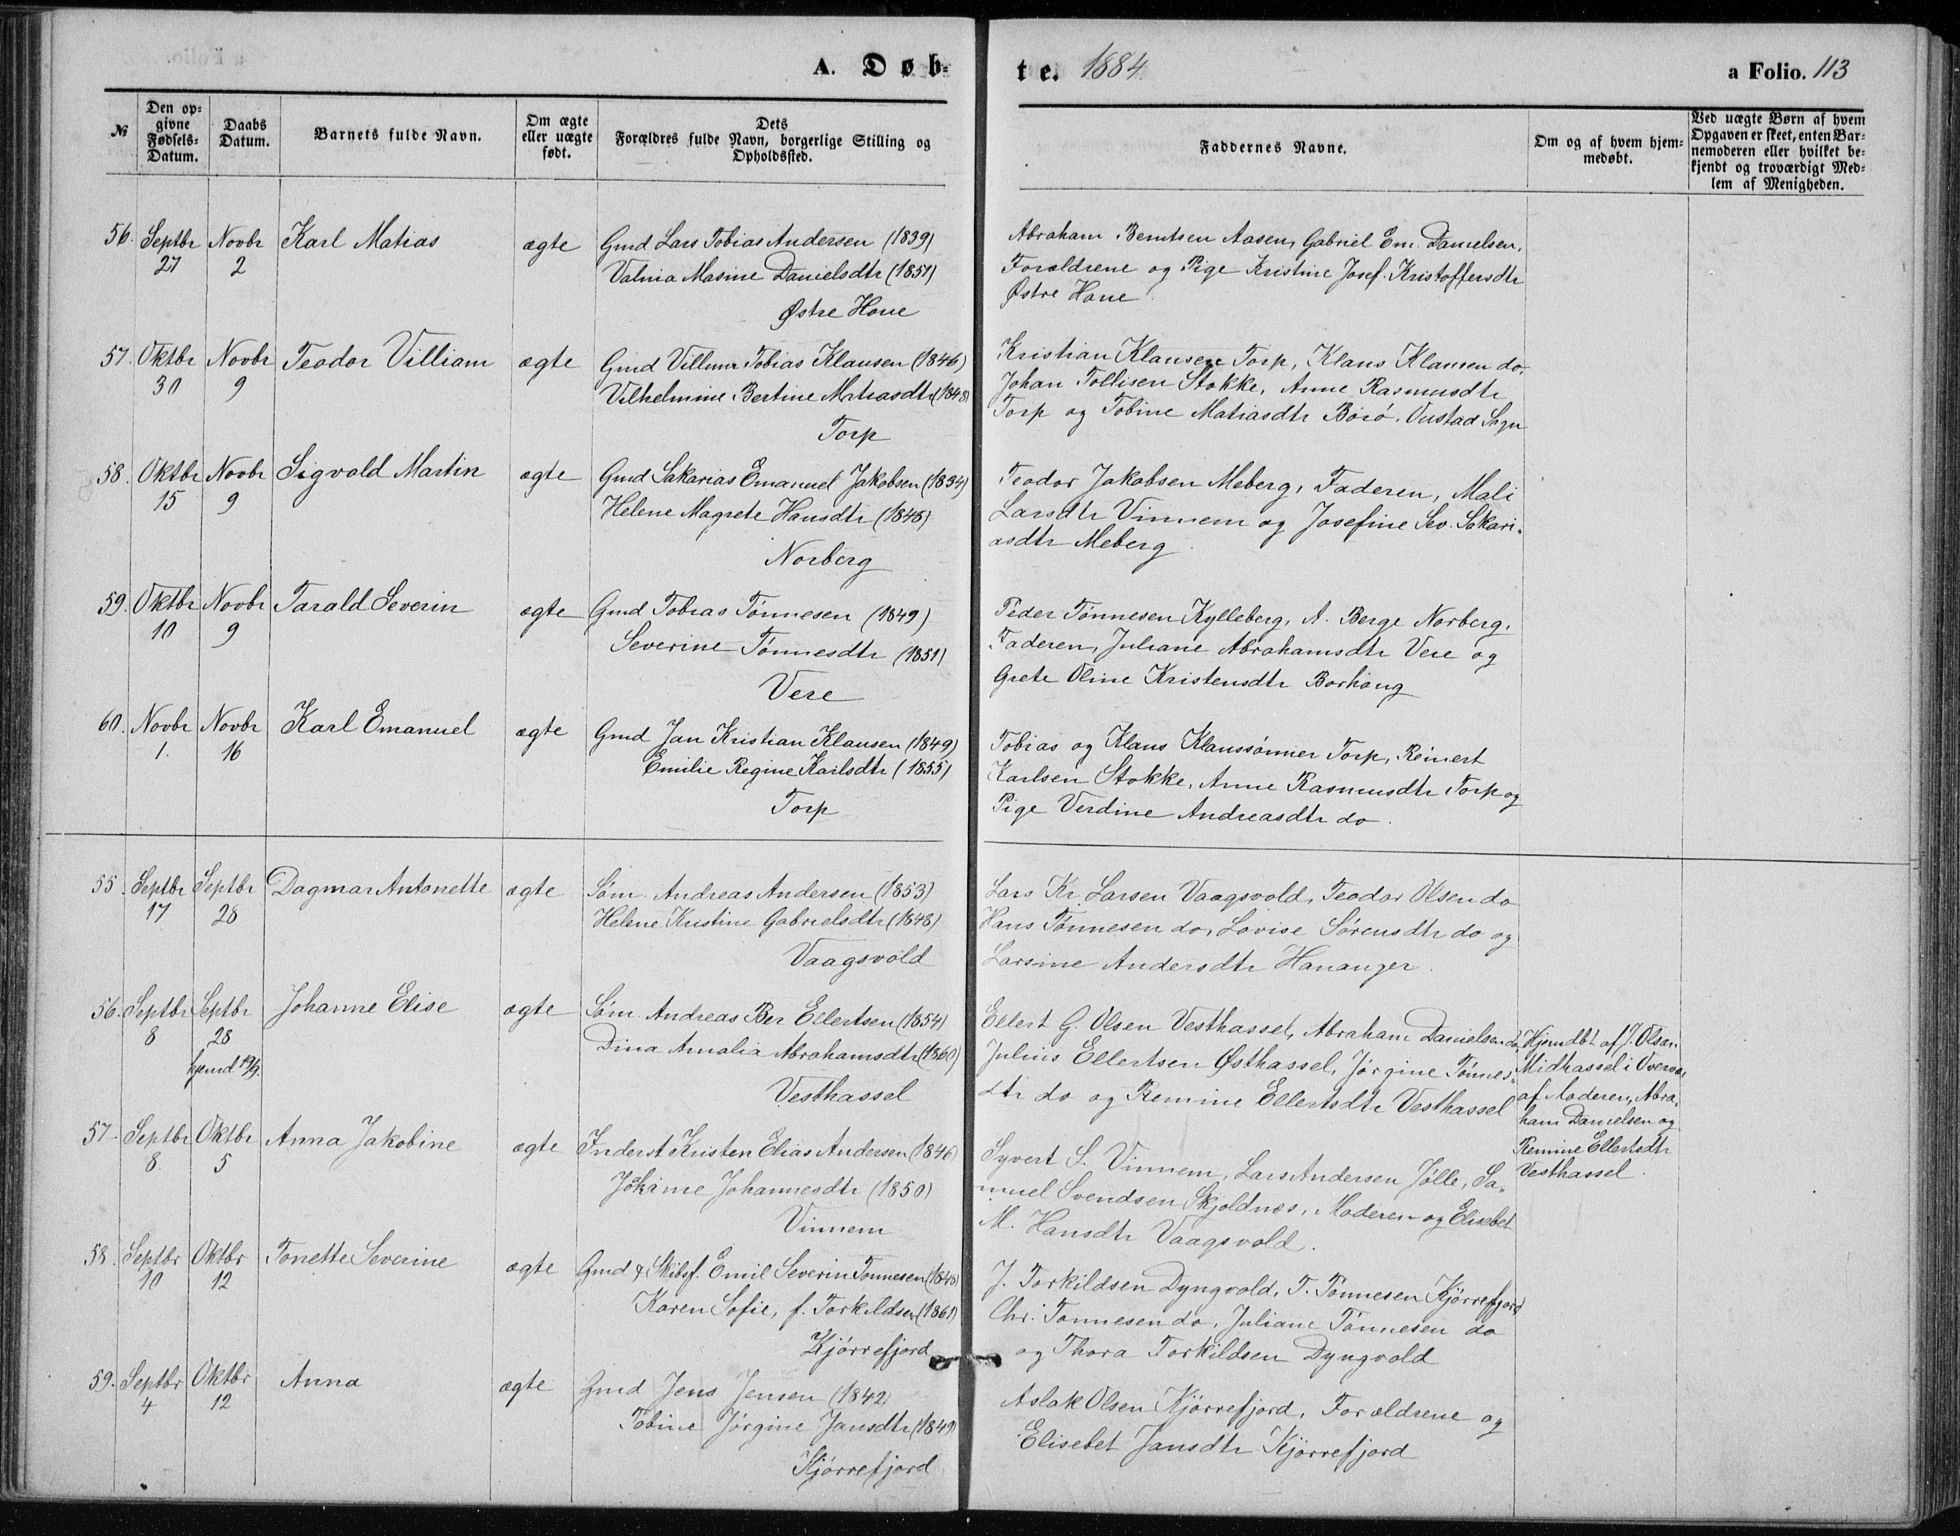 A. Døb-
te. 1884.
a Folio. 113
№
Den op-
givne
Fødsels-
Datum.
Daabs
Datum.
Barnets fulde Navn.
Om ægte
eller uægte
født.
Dets
Forældres fulde Navn, borgerlige Stilling og
Opholdssted.
Faddernes Navne.
Om og af hvem hjem-
medøbt.
Ved uægte Børn af hvem
Opgaven er skeet, enten Bar-
nemoderen eller hvilket be-
kjendt og troværdigt Med-
lem af Menigheden.
56. Septbr 27 Novbr 2 Karl Matias ægte
Gmd Lars Tobias Andersen (1839)
Valnia Masine Danielsdtr (1851)
Østre Haue
Abraham Berntsen Aasen, Gabriel Em. Danielsen,
Forældrene og Pige Kristine Josef. Kristoffersdtr
Østre Haue.
57. Oktbr 30 Novbr 9 Teodor Villiam ægte
Gmd Villum Tobias Klausen (1846)
Vilhelmine Bertine Matiasdtr (1848)
Torp
Kristian Klausen Torp, Klaus Klausen do,
Johan Tollisen Stokke, Anne Rasmusdtr
Torp og Tobine Matiasdtr Borø, Vanse Sogn
58. Oktbr 15 Novbr 9 Sigvald Martin ægte
Gmd Sakarias Emanuel Jakobsen (1834)
Helene Magrete Hansdtr (1845)
Norberg
Teodor Jakobsen Meberg, Faderen, Mali
Larsdtr Vinnem og Josefine Sev. Sakari-
asdtr Meberg.
59. Oktbr 10 Novbr 9 Tarald Severin ægte
Gmd Tobias Tønnesen (1849)
Severine Tønnesdtr (1851)
Vere
Peder Tønnesen Kylleberg, A. Berge Norberg,
Faderen, Juliane Abrahamsdtr Vere og
Grete Oline Kristensdtr Borhaug
60. Novbr 1. Novbr 16 Karl Emanuel ægte
Gmd Jan Kristian Klausen (1849)
Emilie Regine Karlsdtr (1855)
Torp
Tobias og Klaus Klaussønner Torp, Reinert
Karlsen Stokke, Anne Rasmusdtr Torp og
Pige Verdine Andreasdtr do.
55. Septbr 17 Septbr 28 Dagmar Antonette ægte
Søm. Andreas Andersen (1853)
Helene Kristine Gabrielsdtr (1848)
Vaagsvold
Lars Kr. Larsen Vaagsvold, Teodor Olsen do
Hans Tønnesen do, Lovise Sørensdtr do og
Larsine Andersdtr Hananger.
56. Septbr 8 Septbr 28 Johanne Elise ægte
hjemd 10/9.
Søm. Andreas Ber Ellertsen (1854)
Dina Amalia Abrahamsdtr (1860)
Vesthassel
Ellert G. Olsen Vesthassel, Abraham Danielsen do,
Julius Ellertsen Østhassel, Jørgine Tønnes-
dtr do og Remine Ellertsdtr Vesthassel
Hjemdbt af J. Olsen
Midhassel i Overvær
af Moderen, Abra-
ham Danielsen og
Remine Ellertsdtr
Vesthassel.
57. Septbr 8 Oktbr 5 Anna Jakobine ægte
Inderst Kristen Elias Andersen (1846)
Johanne Johannesdtr (1850)
Vinnem
Syvert S. Vinnem, Lars Andersen Jølle, Sa-
muel Svendsen Skjoldnæs, Moderen og Elisebet
M. Hansdtr Vaagsvold.
58. Septbr 10 Oktbr 12 Tonette Severine ægte
Gmd & Skibsf. Emil Severin Tønnesen (1848)
Karen Sofie, f. Torkildsen (1861)
Kjørrefjord
J. Torkildsen Dyngvold, T. Tønnesen Kjørrefjord
Chr. Tønnesen do, Juliane Tønnesen do
og Thora Torkildsen Dyngvold
59. Septbr 4 Oktbr 12 Anna ægte
Gmd Jens Jensen (1842)
Tobine Jørgine Jansdtr (1849)
Kjørrefjord
Aslak Olsen Kjørrefjord, Forældrene og
Elisebet Jansdtr Kjørrefjord